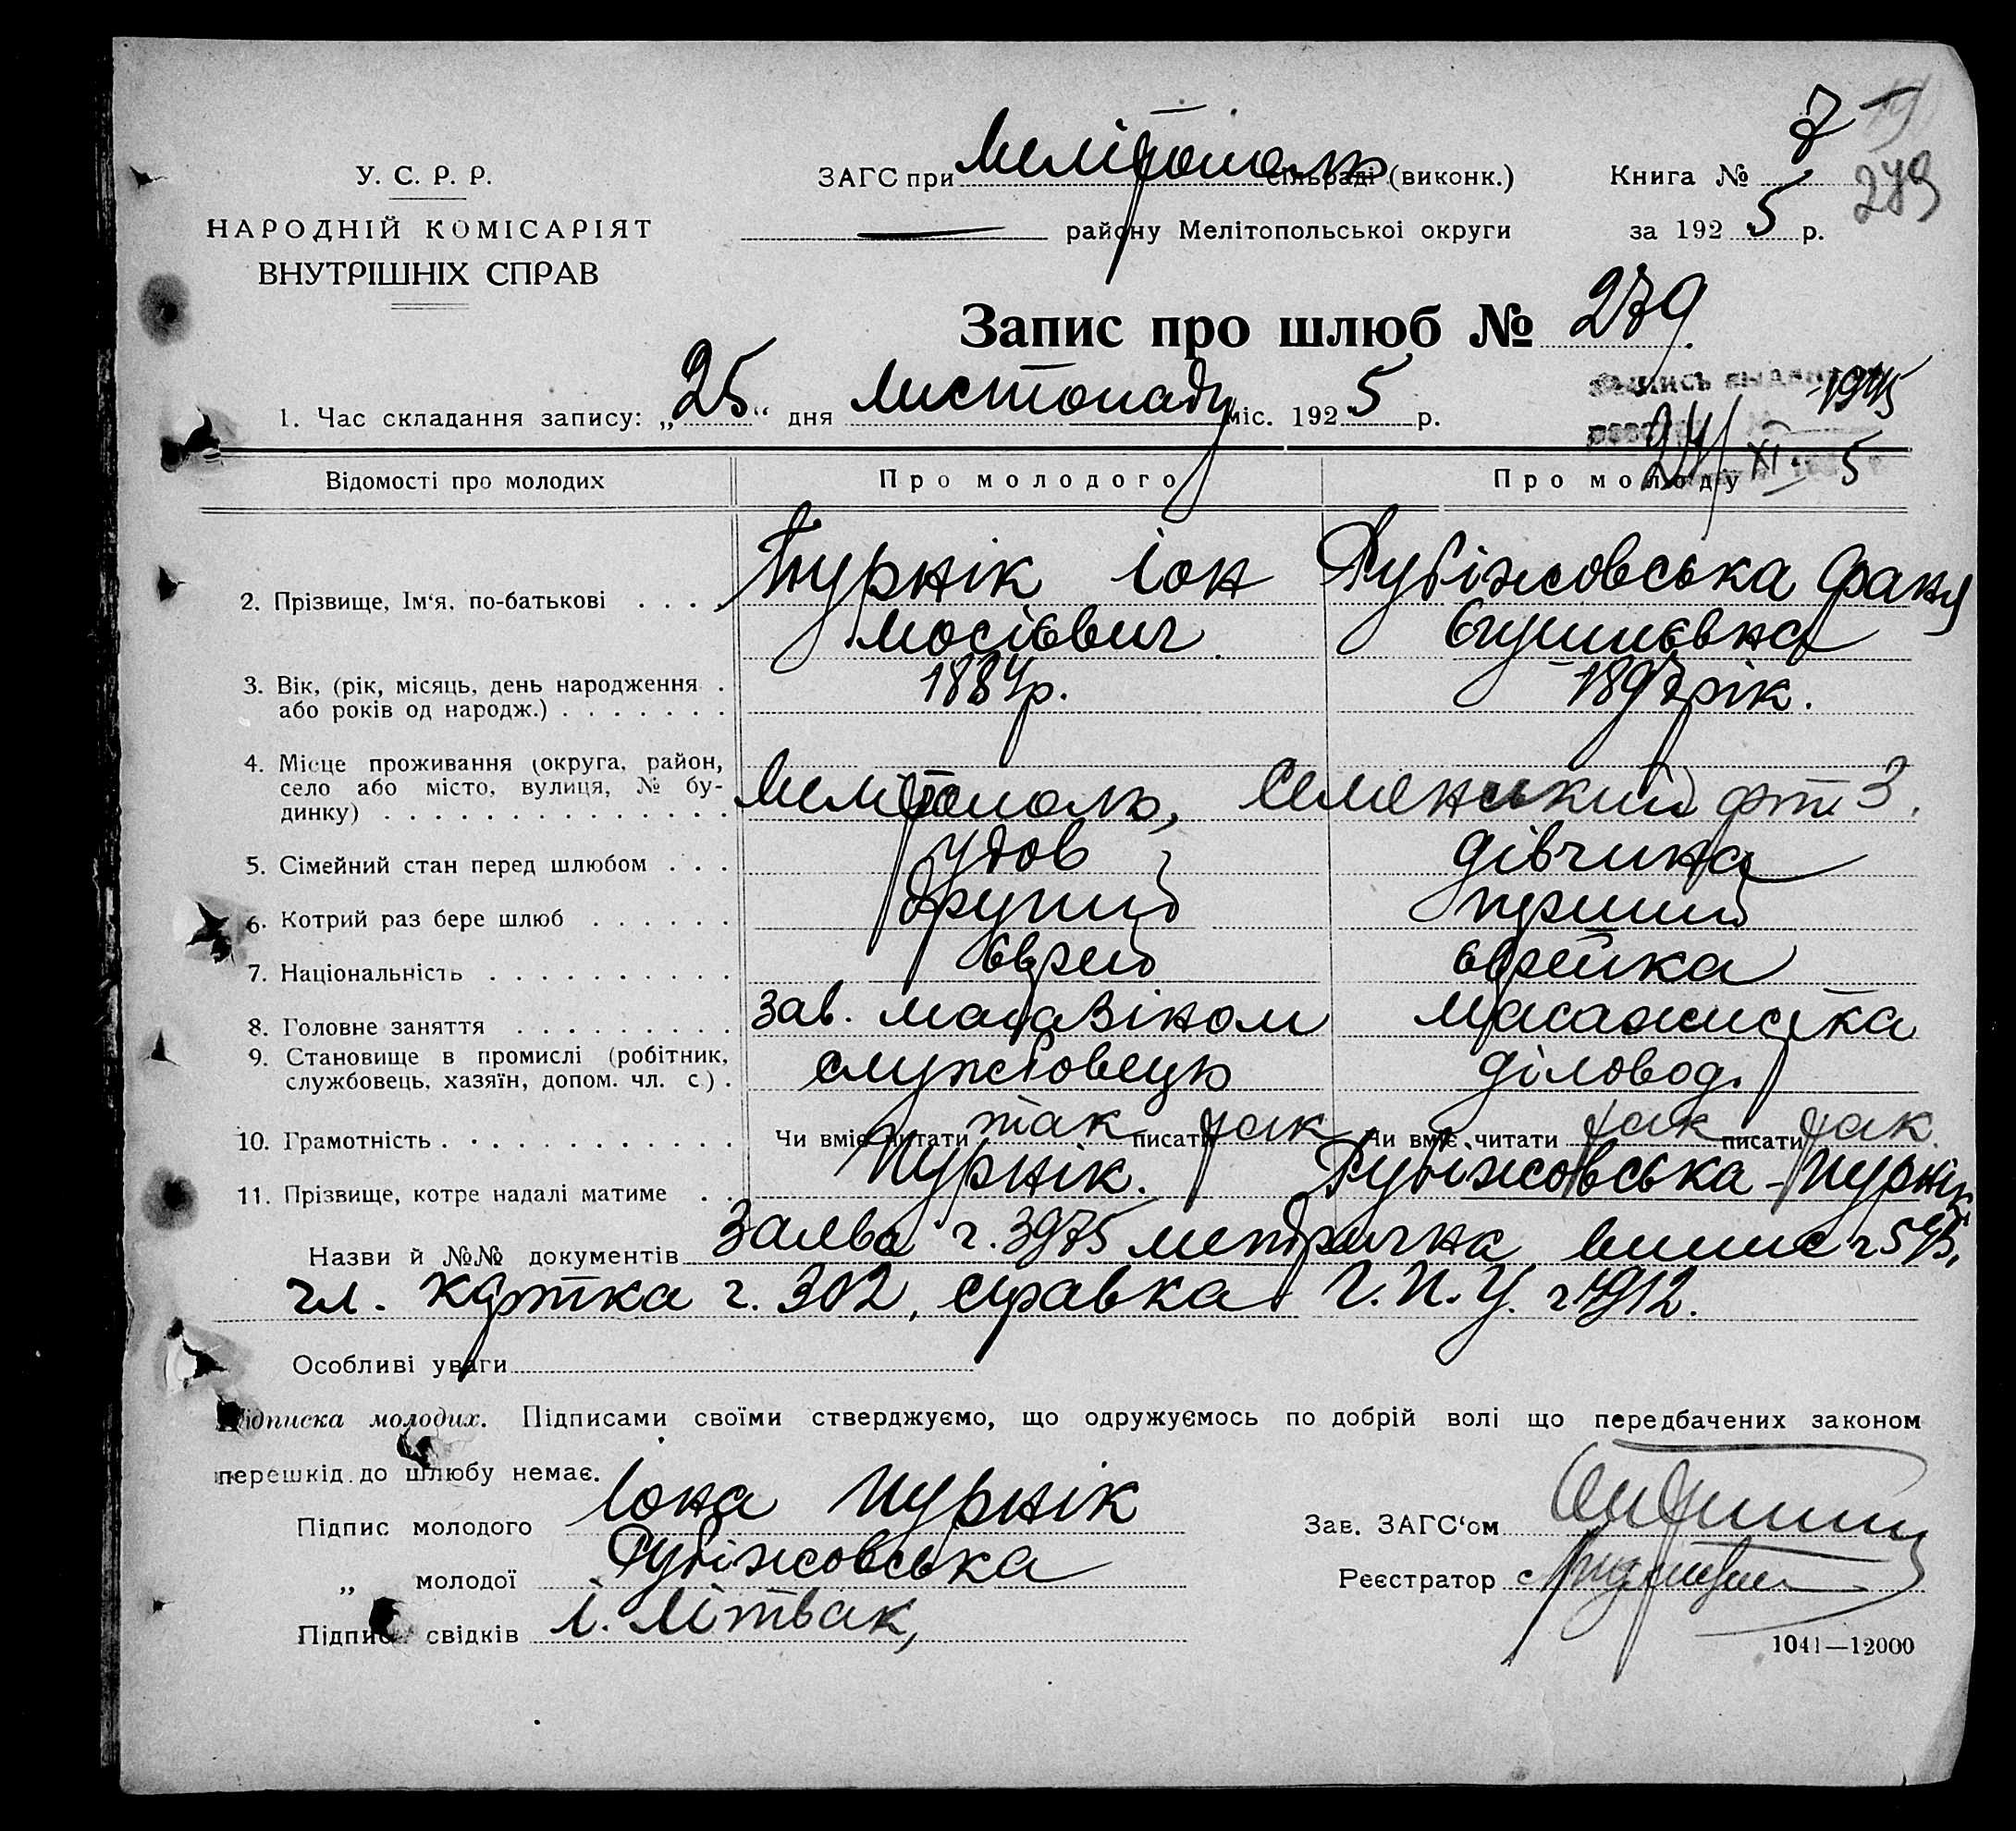 7
279
У. С. Р. Р.
НАРОДНІЙ КОМІСАРІЯТ
ВНУТРІШНІХ СПРАВ
ЗАГС при Мелітополь сільраді (виконк.)
району Мелітопольської округи
Книга №
за 1925 р.
Запис про шлюб № 279.
1. Час складання запису: „25“ дня Листопаду міс. 1925 р.
Відомості про молодих
Про молодого
Про молоду
2. Прізвище, Ім‘я, по-батькові . . . .
Пурнік Іон Мосієвич
Рубіжовська Фаня
3. Вік, (рік, місяць, день народження . або років од народж.) . . . . . . .
1884р.
1897 рік.
4. Місце проживання (округа, район, село або місто, вулиця, № будинку) . . . . . . . . . . . . . .
Мелітополь, 3.
5. Сімейний стан перед шлюбом . . .
удов
дівчина
6. Котрий раз бере шлюб . . . . . .
другий
перший
7. Національність . . . . . . . . . .
єврей
єврейка
8. Головне заняття . . . . . . . . .
зав. магазіном
масажистка
9. Становище в промислі (робітник, службовець, хазяїн, допом. чл. с.) .
службовець
діловод.
10. Грамотність . . . . . . . . . . . .
Чи вміє читати так писати так
Чи вміє читати так писати так.
11. Прізвище, котре надалі матиме . .
Пурнік.
Рубіжовська-Пурнік
Назви й №№ документів Заява ч. 3975 метрична випис ч
чл. картка ч. 302, справка Г.П.У. ч 1912.
Особливі уваги
Підписка молодих. Підписами своїми стверджуємо, що одружуємось по добрій волі що передбачених законом
перешкід до шлюбу немає.
Підпис молодого Іона Пурнік
„ молодої Рубіжовська
Підпис свідків І. Літвак,
Зав. ЗАГС‘ом
Реєстратор
1041—12000